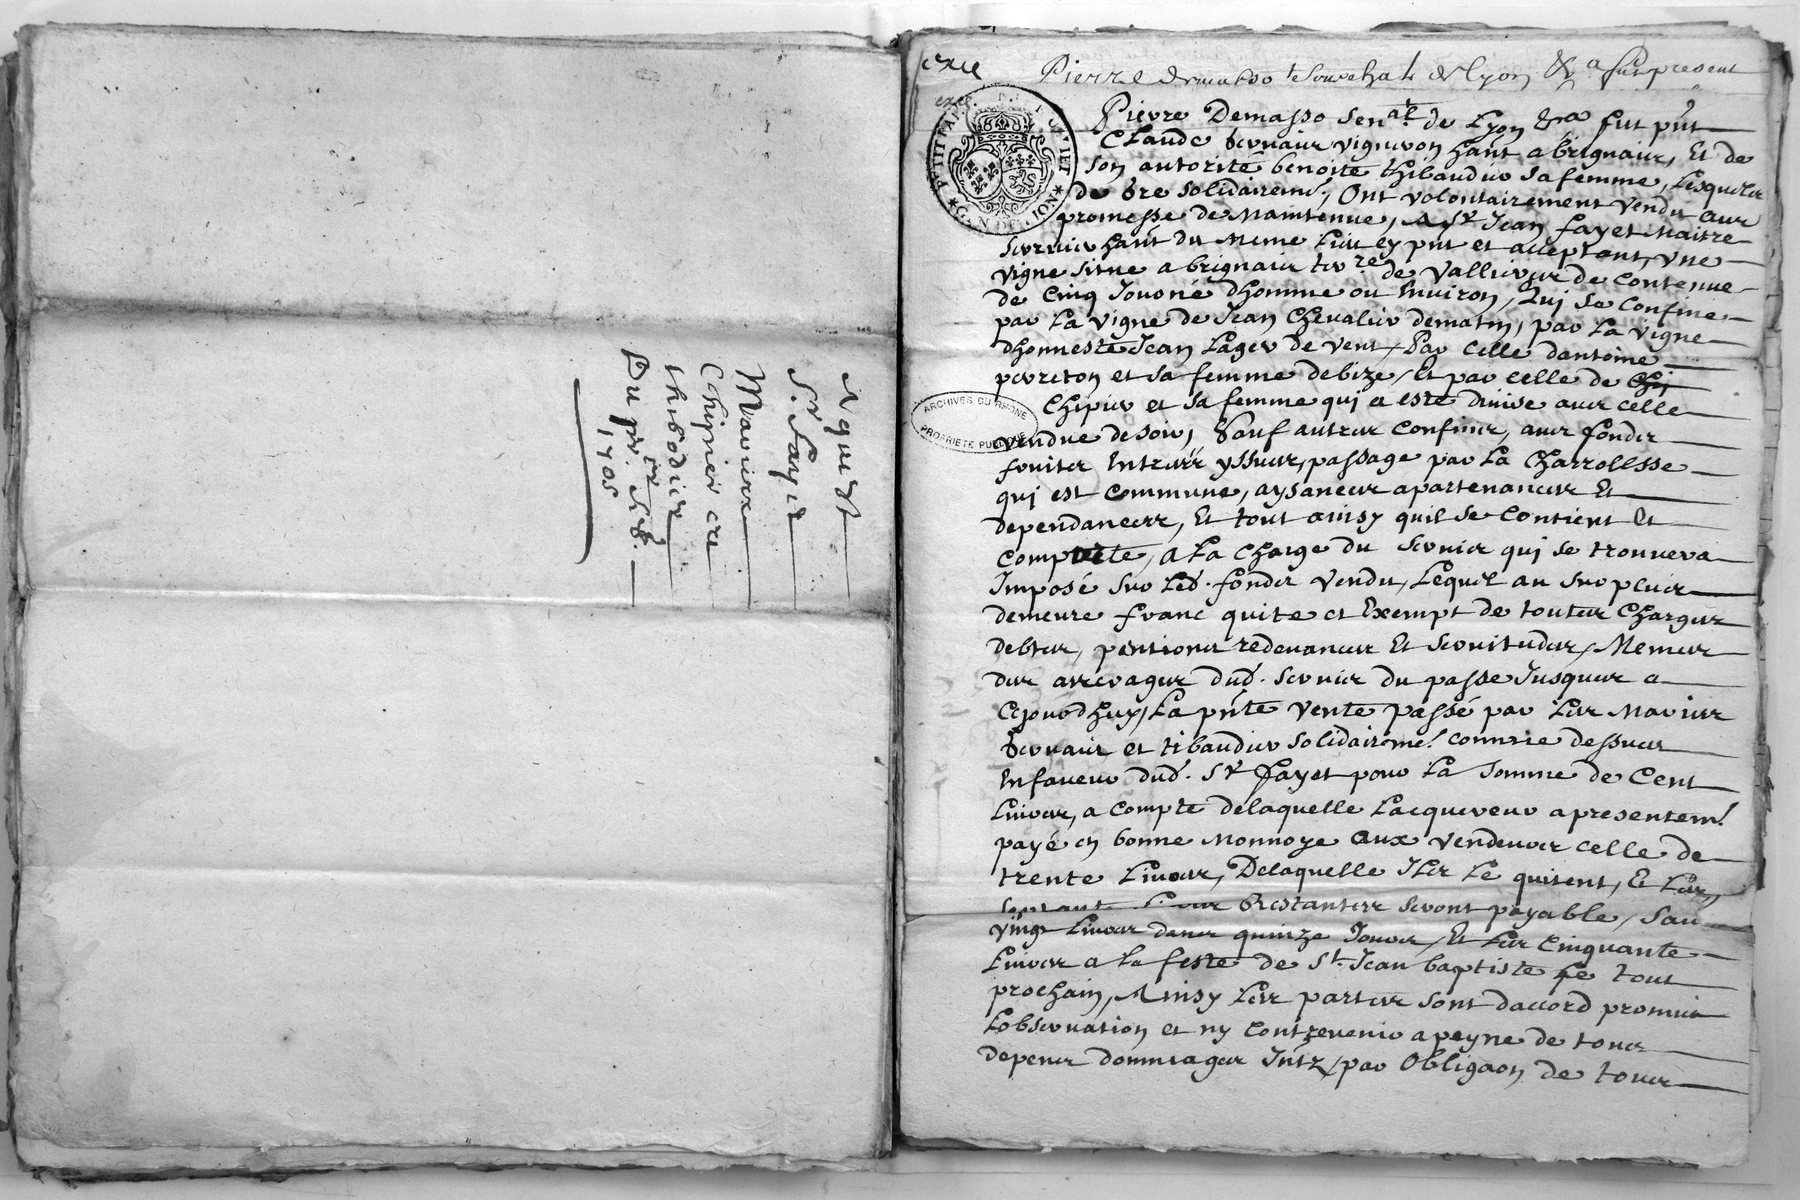 Aquest
Sr. Fayet
Mariez
Chipier et
thibodier
Du pr. xbre
1705
exe
Pierre demasso senechal de Lyon &a fut present
exe.
PETIT PAP.
GEN. DE LION
Pierre Demasso Senal. de Lyon &a fut pnt
Claude Servaie vigneron hant a brignaie, Et de
son autorité benoite thibaudie sa femme, Lesquelz
de Gre solidairemt, Ont volontairement vendu avec
promesse de Maintenue, A Sr Jean fayet Maitre
hant du Meme Lieu ey pnt et acceptant, Vne
vigne sitüe a brignaie terre de Vallieur de Contenue
de Cinq Journé dhomme ou Environ, Qui se Confine
par La vigne de Jean Chevalier dematin, par La vigne
dhonneste Jean Lager de vent, Par Celle dantoine
perreton et sa femme debize, Et par celle de
Chipier et sa femme qui a esté divisé avec celle
vendue de soir, Sauf autres Confins, avec fonds
fruites Entrées yssues, passage par La Charrollesse
qui est Commune, aysances apartenances Et
dependances, Et tout ainsy quil se Contient Et
Comporte, A La Charge du Servis qui se trouvera
Imposé sur Led. fonds vendu, Lequel au surplus
demeure franc quite et Exempt de toutes Charges
debtes, pentions redevances Et Servitudes, Memes
des arrerages dud. Servis du passé Jusques a
Cejourdhuy, La pnte vente passé par Les Maries
Servaie et tibaudier solidairemt. comme dessus
En faveur dud. Sr fayet pour La Somme de Cent
Livres, a compte delaquelle Lacquereur a presentemt.
payé en bonne Monnoye aux vendeurs celle de
trente Livres, Delaquelle Ils Le quitent, Et Les
septante Livres Restantes seront payable, Sav.
vingt Livres dans quinze Jours, Et Les Cinquante
Livres a la feste de St. Jean baptiste Le tout
prochain, Ainsy Les parties sont daccord promis
Lobservation et ny Contrevenir a peyne de tous
depens dommages Intz, par Obligaon de tous
ARCHIVES DU RHONE
PROPRIETE PUBLIQUE